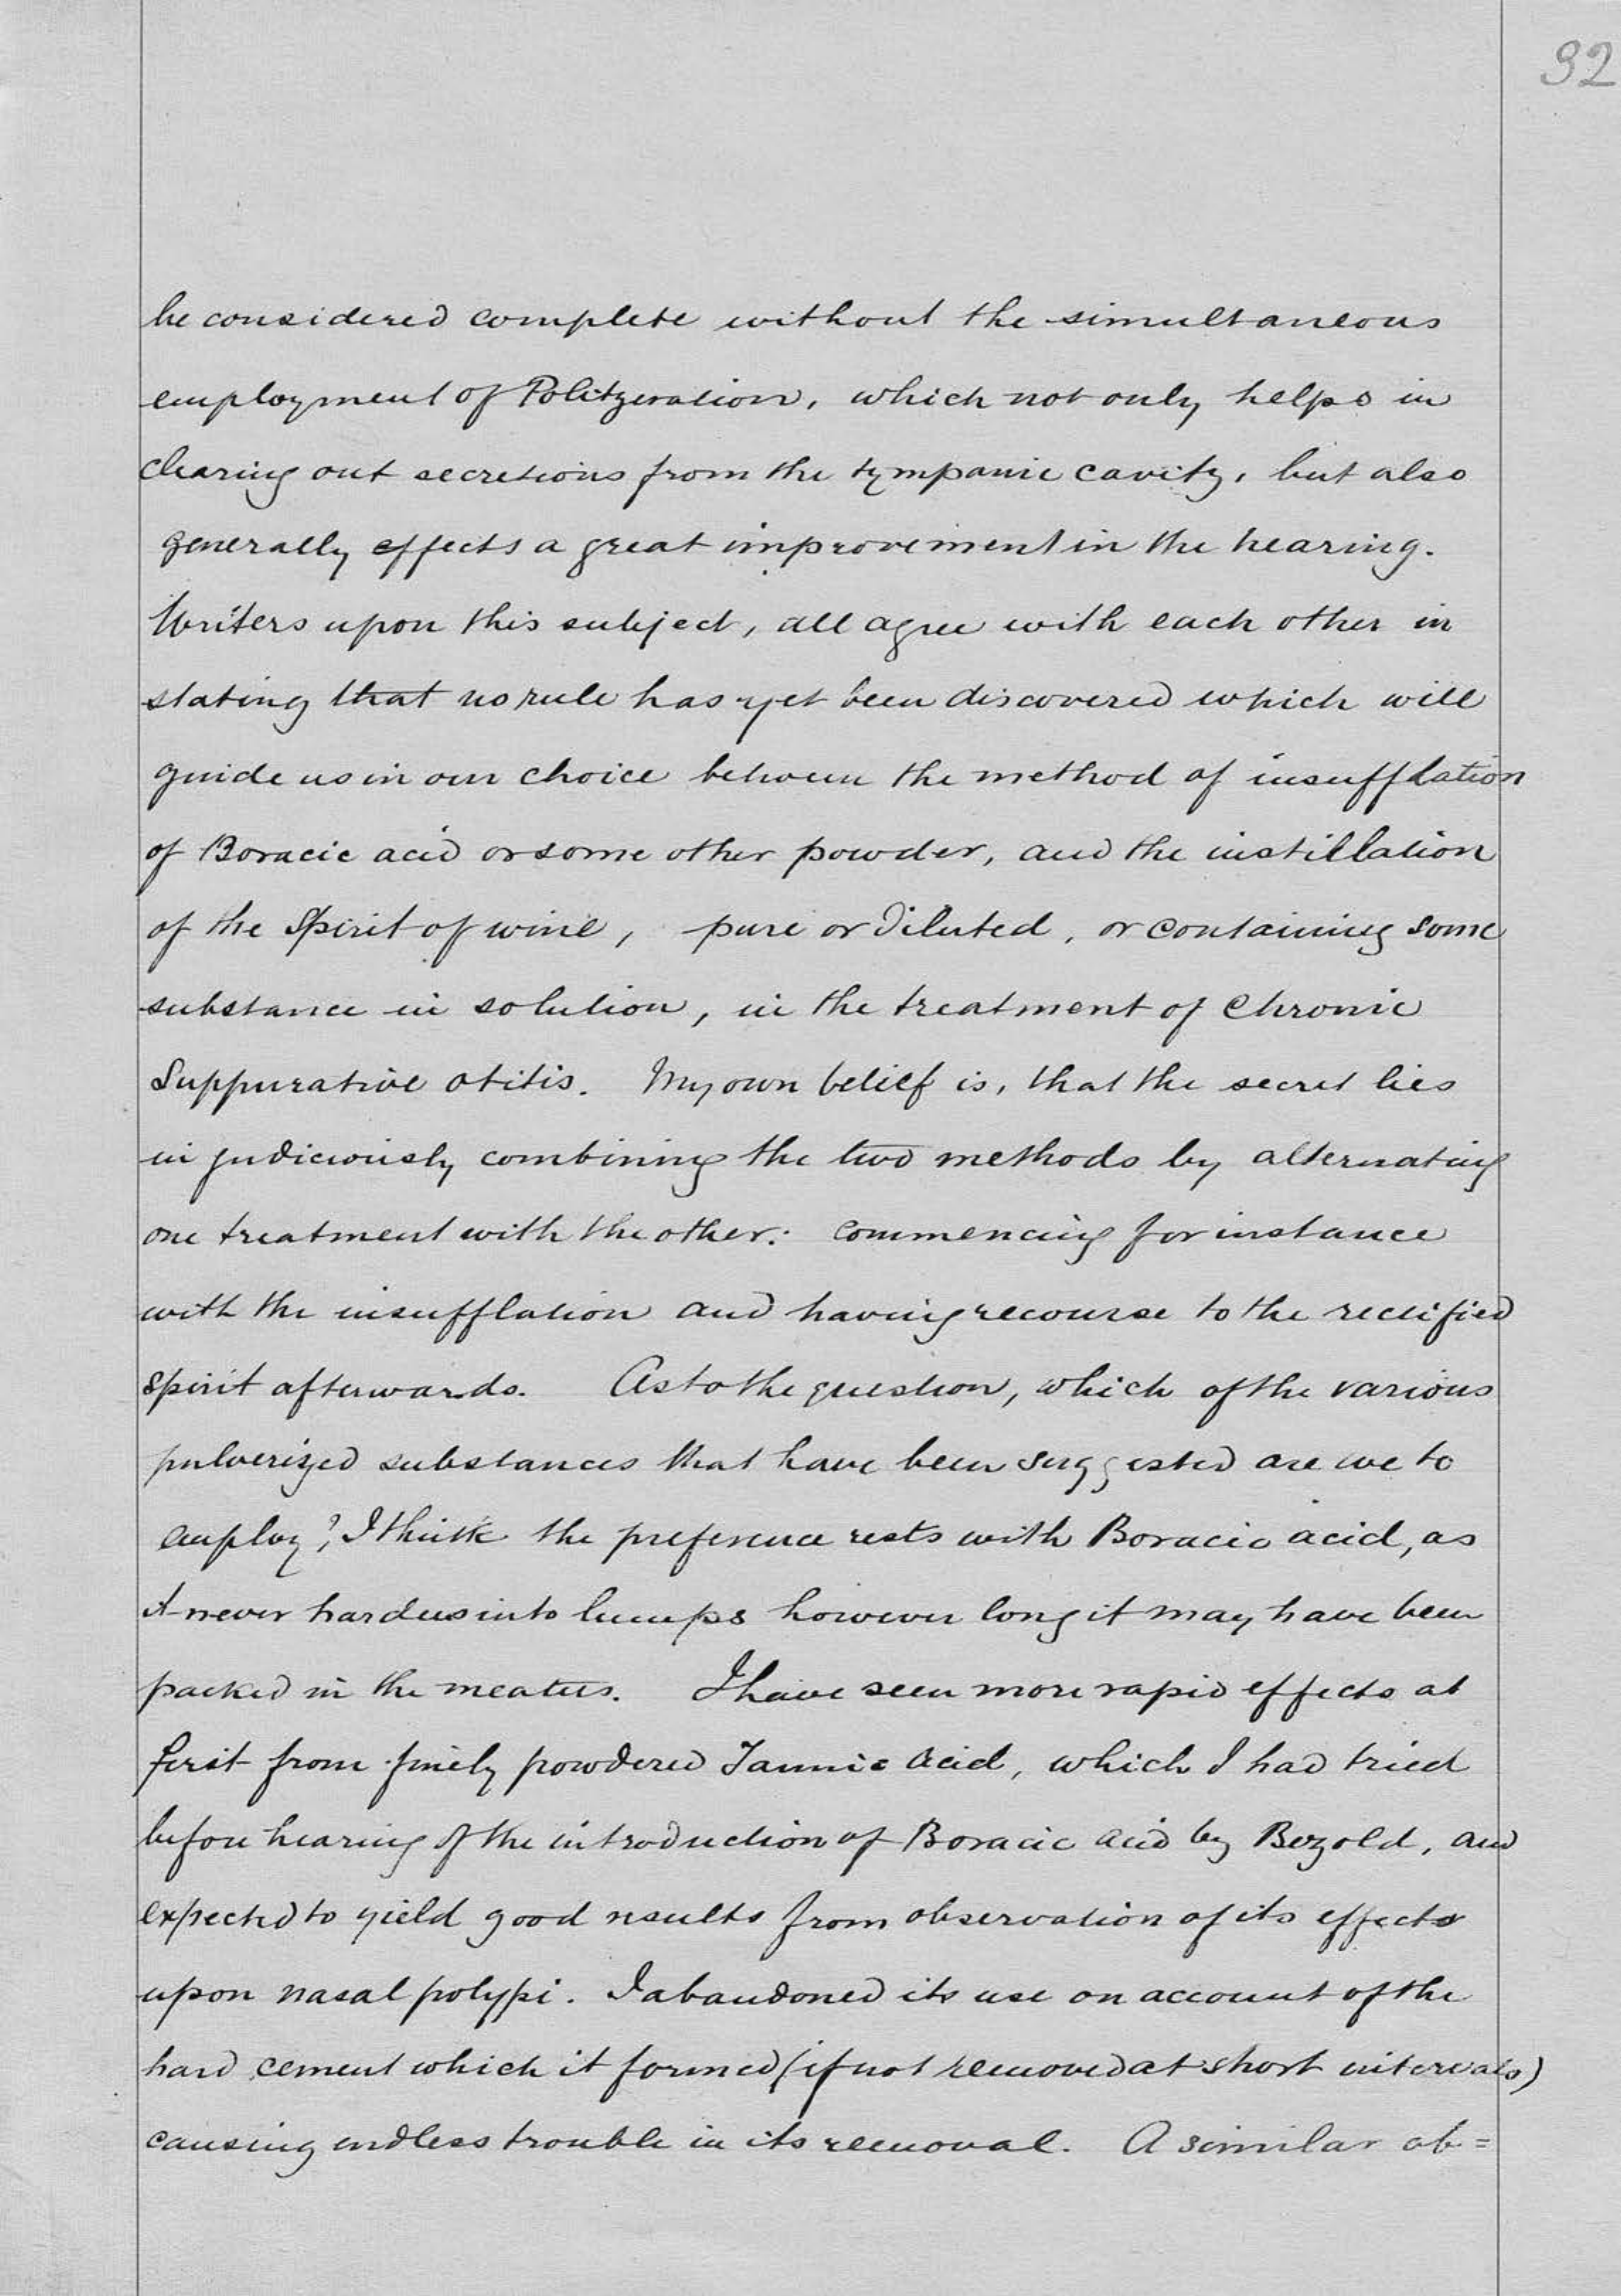 32
be considered complete without the simultaneous
employment of Politzeration, which not only helps in
clearing out secretions from the tympanic cavity, but also
generally effects a great improvement in the hearing.
Writers upon this subject, all agree with each other in
stating that no rule has yet been discovered which will
guide us in our choice between the method of insufflation
of Boracic acid or some other powder, and the instillation
of the Spirit of wine, pure or diluted, or containing some
substance in solution, in the treatment of Chronic
Suppurative otitis. My own belief is, that the secret lies
in judiciously combining the two methods by alternating
one treatment with the other: commencing for instance
with the insufflation and having recourse to the rectified
spirit afterwards. As to the question, which of the various
pulverized substances that have been suggested are we to
employ?, I think the preference rests with Boracic acid, as
it never hardens into lumps however long it may have been
packed in the meatus. I have seen more rapid effects at
first from finely powdered Tannic acid, which I had tried
before hearing of the introduction of Boracic acid by Bezold, and
expected to yield good results from observation of its effects
upon nasal polypi. I abandoned its use on account of the
hard cement which it formed (if not removed at short intervals)
causing endless trouble in its removal. A similar ob=